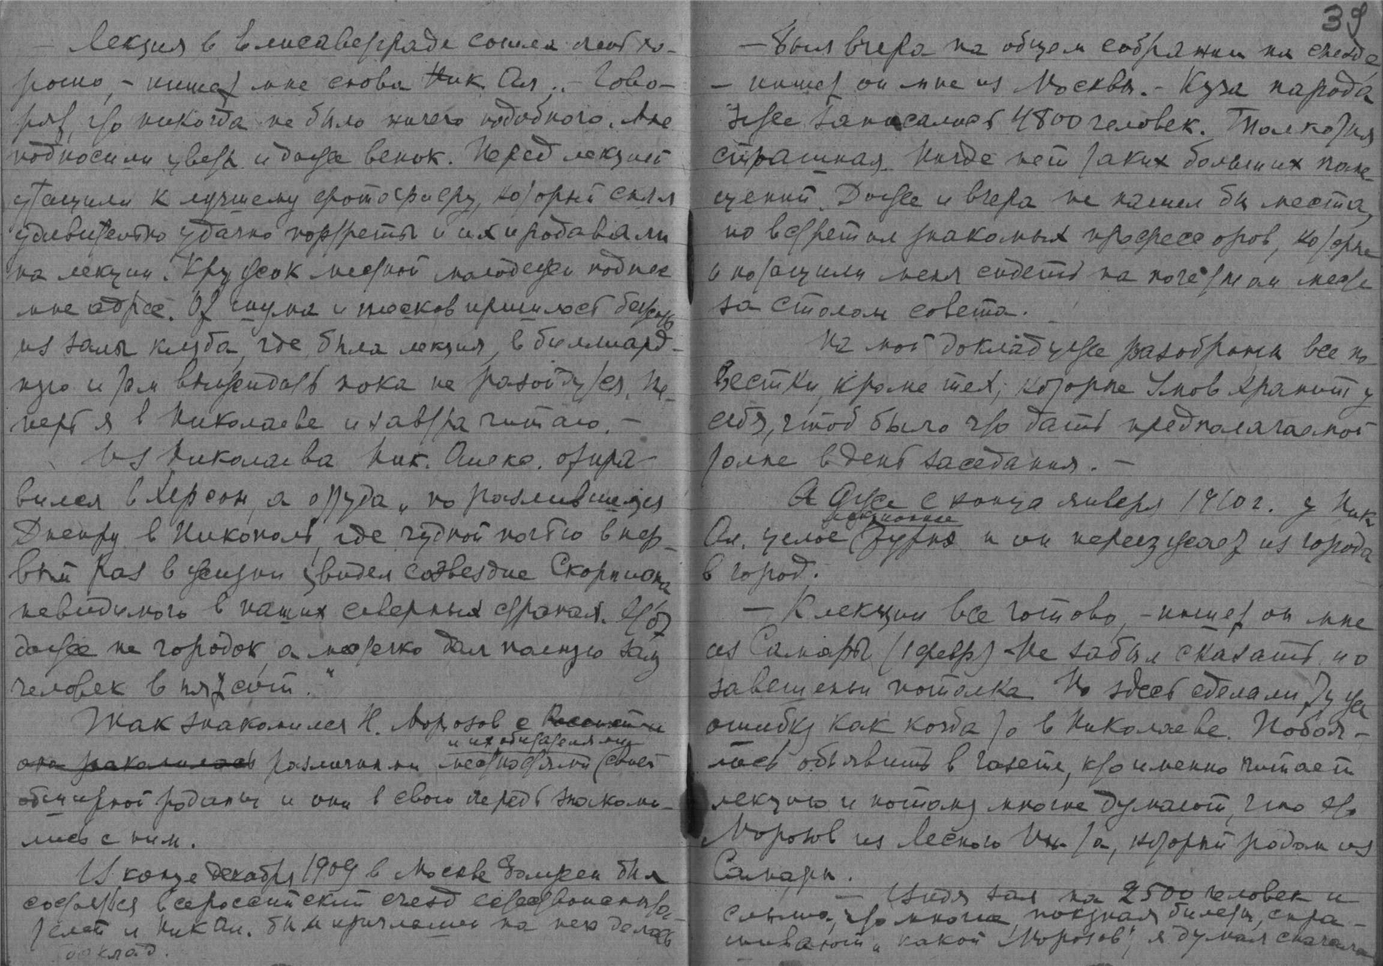 — Лекция в Елисаветграде сошла очень хо-
рошо, — пишет мне снова Ник Ал.. — Гово-
рят, что никогда не было ничего подобного. Мне
подносили цветы и даже венок. Перед лекцией
утащили к лучшему фотографу, который снял
удивительно удачно портреты и их продавали
на лекции. Кружок местной молодежи поднес
мне адрес. От шума и плесков пришлось бежать
из залы клуба, где была лекция, в биллиард-
ную и там выжидать пока не разойдутся. Те-
перь я в Николаеве и завтра читаю. —
Из Николаева Ник. Алекс. отпра-
вился в Херсон, а оттуда „по разлившемуся
Днепру в Никополь, где чудной ночью в пер-
вый раз в жизни увидел созвездие Скорпиона
невидимого в наших северных странах. Этот
даже не городок, а местечко дал полную залу
человек в пятьсот."
Так знакомился Н. Морозов с
различными местностями своей
и их обитателями
обширной родины и они в свою очередь знакоми-
лись с ним.
В конце декабря 1909 в Москве должен был
состояться всероссийский съезд естествоиспыта-
телей и Ник Ал. был приглашен на нем делать
доклад.
39
— Был вчера на общем собрании на съезде,
— пишет он мне из Москвы. — Куча народа
Уже записалось 4800 человек. Толкотня
страшная. Нигде нет таких больших поме-
щений. Даже и вчера не нашел бы места,
но встретил знакомых профессоров, которые
и потащили меня сидеть на почетном месте
за столом совета.
На мой доклад уже разобраны все по-
вестки, кроме тех, которые Умов хранит у
себя, чтоб было что дать предполагаемой
толпе в день заседания. —
А уже с конца января 1910 г. у Ник
Ал. целое турнэ и он переезжает из города
лекционное
в город.
— К лекции все готово, — пишет он мне
из Самары (1 февр) Не забыл сказать и о
завешеньи потолка. Но здесь сделали ту же
ошибку как когда то в Николаеве. Побоя-
лись объявить в газете, кто именно читает
лекцию и потому многие думают, что это
Морозов из Лесного Ин-та, который родом из
Самары.
— Видя зал на 2500 человек и
слыша, что многие покупая билеты, спра-
шивают „какой Морозов", я думал сначала